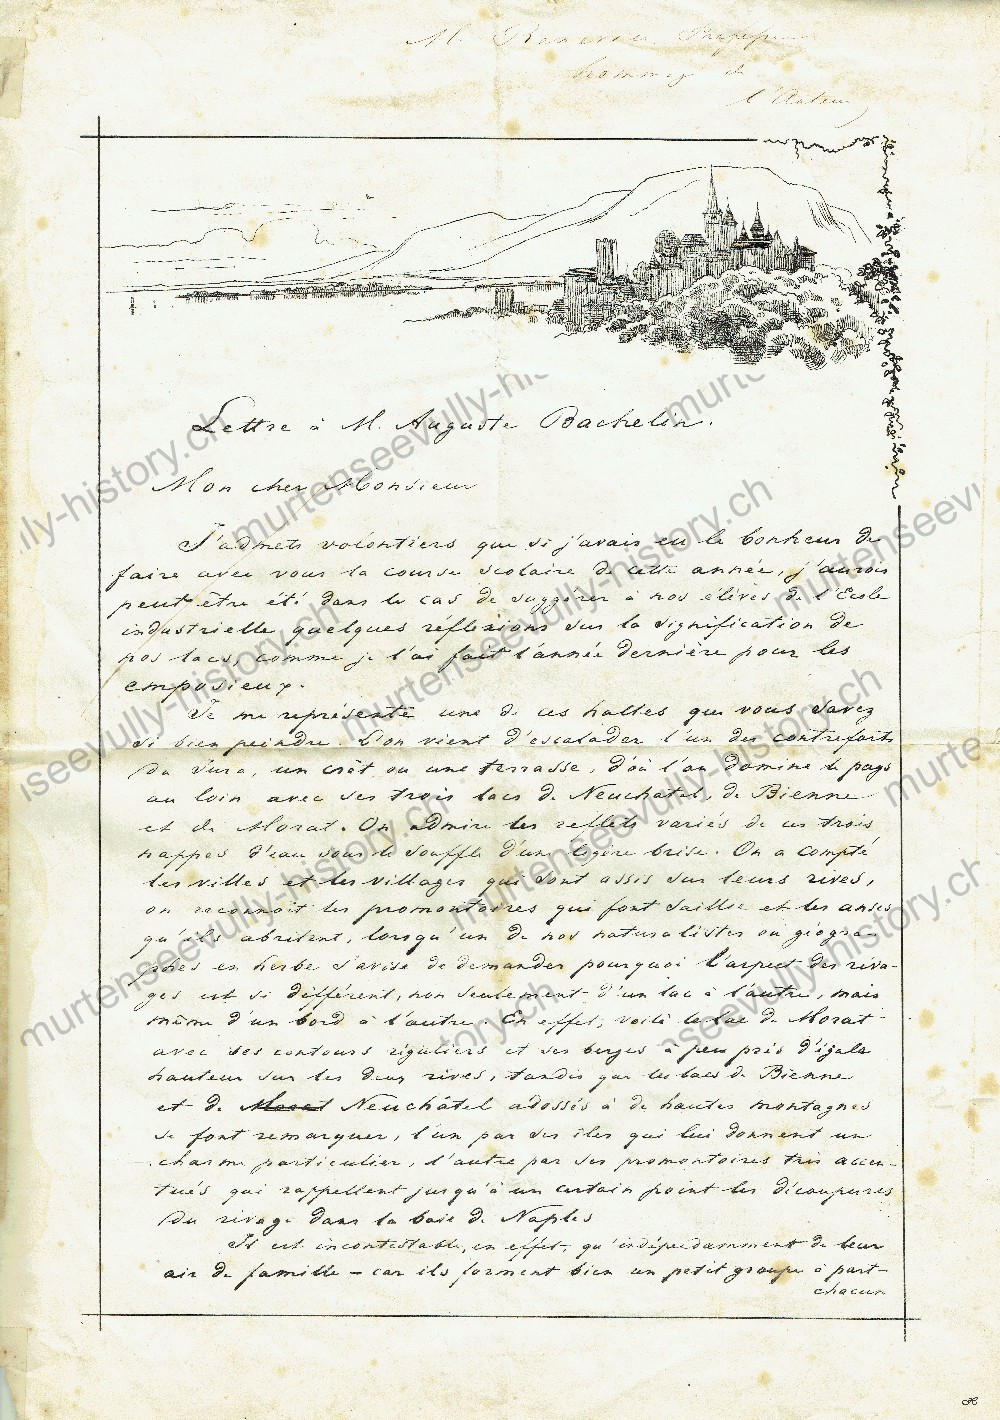 l'Auteur
Lettre à M. Auguste Bachelin.
Mon cher Monsieur
J'admets volontiers que si j'avais eu le bonheur de
faire avec vous la course scolaire de cette année, j'aurois
peut être été dans le cas de suggérer à nos élèves de l'Ecole
industrielle quelques réflexions sur la signification de
nos lacs, comme je l'ai fait l'année dernière pour les
emposieux.
Je me représente une de ces haltes que vous savez
si bien peindre. L'on vient d'escalader l'un des contreforts
du Jura, un crêt ou une terrasse, d'où l'on domine le pays
au loin avec ses trois lacs de Neuchâtel, de Bienne
et de Morat. On admire les reflets variés de ces trois
nappes d'eau sous le souffle d'une légère brise. On a compté
les villes et les villages qui sont assis sur leurs rives,
on reconnoit les promontoires qui font saillie et les anses
qu'ils abritent, lorsqu'un de nos naturalistes ou géogra-
phes en herbe s'avise de demander pourquoi l'aspect des riva-
ges est si différent, non seulement d'un lac à l'autre, mais
même d'un bord à l'autre. En effet, voilà le lac de Morat
avec ses contours réguliers et ses berges à peu près d'égale
hauteur sur les deux rives, tandis que les lacs de Bienne
et de Morat Neuchâtel adossés à de hautes montagnes
se font remarquer, l'un par ses îles qui lui donnent un
charme particulier, l'autre par ses promontoires très accen-
tués qui rappellent jusqu'à un certain point les découpures
du rivage dans la baie de Naples
Il est incontestable, en effet, qu'indépendamment de leur
air de famille – car ils forment bien un petit groupe à part –
chacun
murtenseevully-history.ch